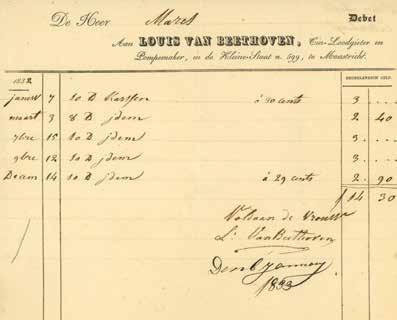 De Heer Maret Debet
Aan LOUIS VAN BEETHOVEN, Tin-Loodgieter en
Pompemaker, in de Kleine-Staat n. 599, te Maastricht.
1832 NEDERLANDSCH GELD.
januri 7 10 D Karssen á 30 cents 3
maart 3 8 D jdem 2 40
7bre 15 10 D jdem 3
9bre 12 10 D jdem 3
Decem 14 10 D jdem á 29 cents 2 90
f 14 30
Voldaen de
L: Van Beethoven
Den 6 January
1833